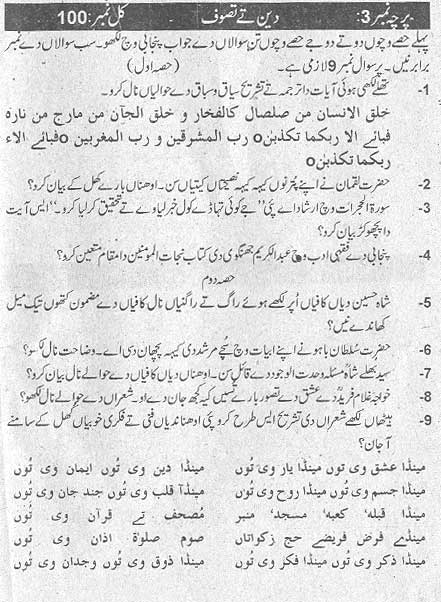 پرچہ نمبر 3: دین تے تصوف کل نمبر: 100
پہلے حصے وچوں دو تے دوجے حصے وچوں تن سوالاں دے جواب پنجابی وچ لکھو۔ سب سوالاں دے نمبر
برابر نیں۔ پر سوال نمبر 9 لازمی ہے۔ (حصہ اول)
1- تھلے لکھی ہوئی آیات دا ترجمہ تے تشریح سیاق و سباق دے حوالیاں نال کرو۔
خلق الانسان من صلصال کالفخار و خلق الجآن من مارج من نارہ
فبائے الا ربکما تکذبٰنo رب المشرقین و رب المغربین oفبائے الاء
ربکما تکذبٰنo
2- حضرت لقمان نے اپنے پتر نوں کیہہ کیہہ نصیحتاں کیتیاں سن۔ اوہناں بارے کھل کے بیان کرو؟
3- سورۃ الحجرات وچ ارشاد اے پئی "جے کوئی تہاڈے کول خبر لیاوے تے تحقیق کر لیا کرو"۔ ایس آیت
دا پچھوکڑ بیان کرو؟
4- پنجابی دے فقہی ادب وچ عبدالکریم جھنگوی دی کتاب نجات المومنین دا مقام متعین کرو؟
حصہ دوم
5- شاہ حسین دیاں کافیاں اُپر لکھے ہوئے راگ تے راگنیاں نال کافیاں دے مضمون کتھوں تیک میل
کھاندے نیں؟
6- حضرت سُلطان باہو نے اپنے ابیات وچ سچے مرشد دی کیہہ پچھان دسی اے۔ وضاحت نال لکھو؟
7- سید بلھے شاہ مسئلہ وحدت الوجود دے قائل سن۔ اوہناں دیاں کافیاں دے حوالے نال بیان کرو؟
8- خواجہ غلام فریدؒ دے عشق دے تصور بارے تسیں کیہ کجھ جان دے او۔ شعراں دے حوالے نال لکھو؟
9- ہیٹھاں لکھے شعراں دی تشریح ایس طرح کرو پئی اوہناندیاں فنی تے فکری خوبیاں کھل کے سامنے
آ جان؟
مینڈا عشق وی توں مینڈا یار وی توں مینڈا دین وی توں ایمان وی توں
مینڈا جسم وی توں مینڈا روح وی توں مینڈا قلب وی توں جند جان وی توں
مینڈا قبلہ کعبہ مسجد منبر مُصحف تے قرآن وی توں
مینڈے فرض فریضے حج زکواتاں صوم صلوٰۃ اذان وی توں
مینڈا ذکر وی توں مینڈا فکر وی توں مینڈا ذوق وی توں وجدان وی توں